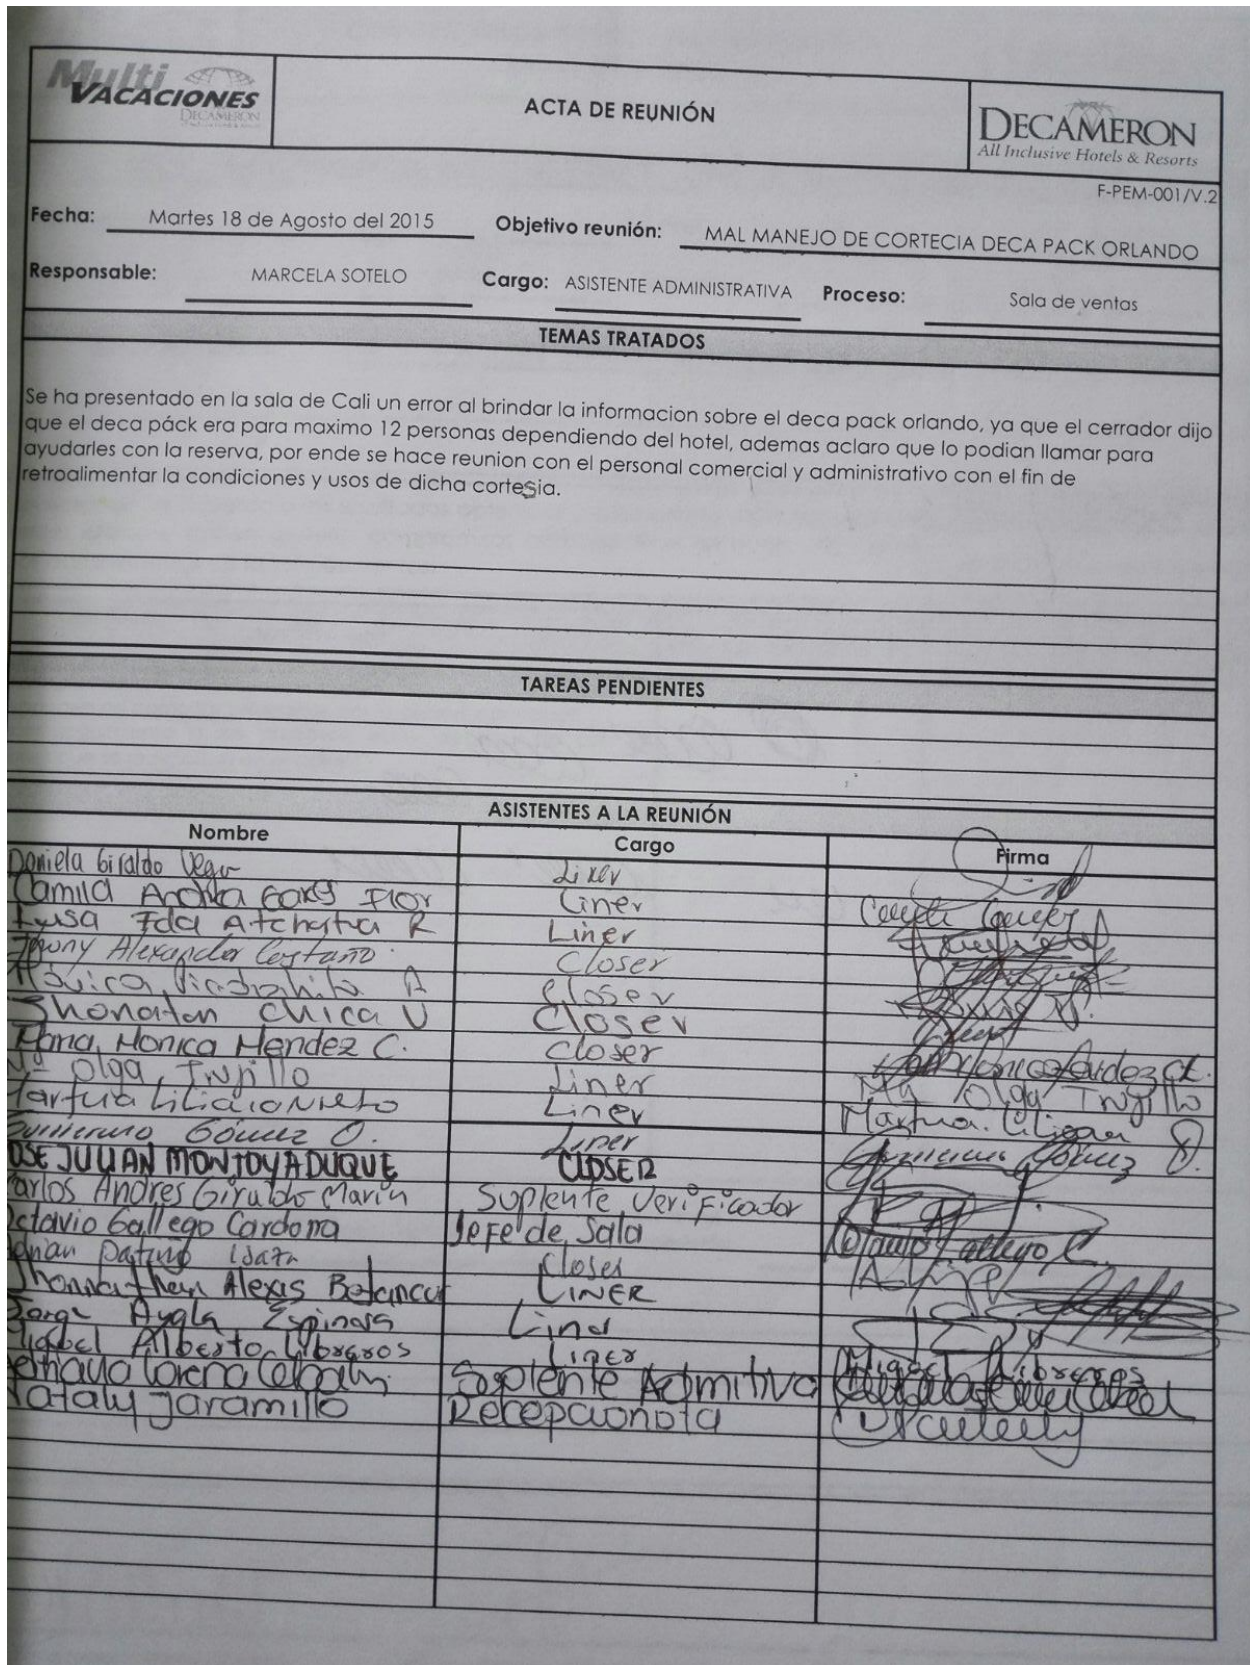 Multi
VACACIONES
DECAMERON
ACTA DE REUNIÓN
DECAMERON
All Inclusive Hotels & Resorts
F-PEM-001/V.2
Fecha: Martes 18 de Agosto del 2015 Objetivo reunión: MAL MANEJO DE CORTECIA DECA PACK ORLANDO
Responsable: MARCELA SOTELO Cargo: ASISTENTE ADMINISTRATIVA Proceso: Sala de ventas
TEMAS TRATADOS
Se ha presentado en la sala de Cali un error al brindar la informacion sobre el deca pack orlando, ya que el cerrador dijo
que el deca páck era para maximo 12 personas dependiendo del hotel, ademas aclaro que lo podian llamar para
ayudarles con la reserva, por ende se hace reunion con el personal comercial y administrativo con el fin de
retroalimentar la condiciones y usos de dicha cortesia.
TAREAS PENDIENTES
ASISTENTES A LA REUNIÓN
Nombre Cargo Firma
Daniela Giraldo Liner
Camila Flor Liner
R Liner
Alexander Castaño Closer
A Closer
Jhonatan Chica V Closer
Monica Mendez C. Closer
Mª Olga Trujillo Liner Mª Olga Trujillo
Liner
Guillermo Gómez O. Liner Guillermo Gómez O.
OSE JULIAN MONTOYA DUQUE CLOSER
Carlos Andres Giraldo Marin Suplente Verificador
Octavio Gallego Cardona Jefe de Sala Octavio Gallego C.
Closer
Alexis Betancur LINER
Jorge Ayala Espinosa Liner
Miguel Alberto Libreros Liner Miguel Libreros
Lorena Suplente Admitivo
Nataly Jaramillo Recepcionista